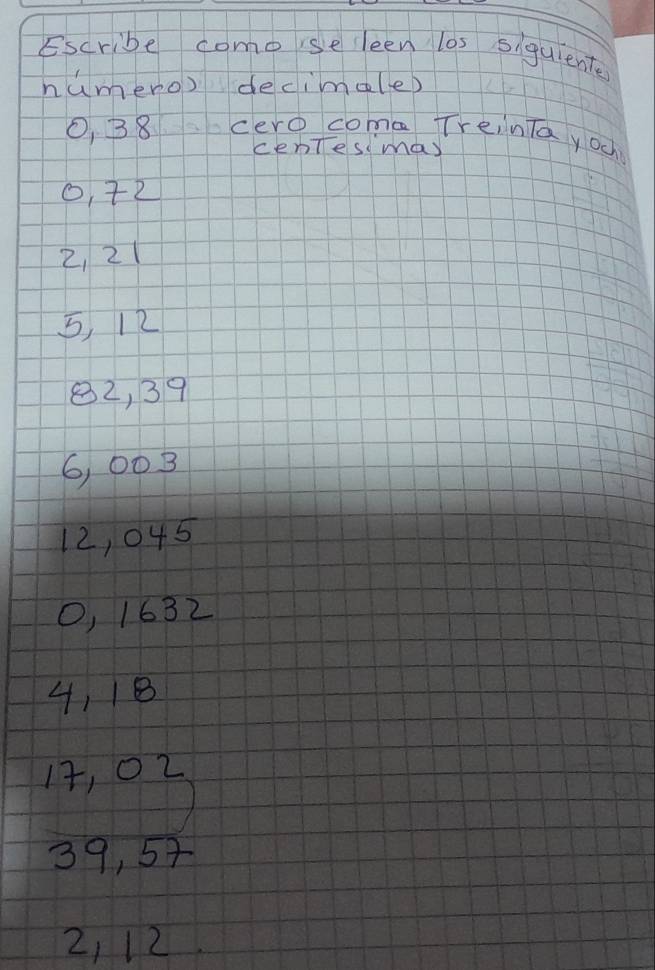 Escribe como se leen los siguientes
números decimales
0,38 cero coma Treinta y ocho
centesimas
0,72
2,21
5,12
82,39
6,003
12,045
0,1632
4,18
17,02
39,57
2,12.